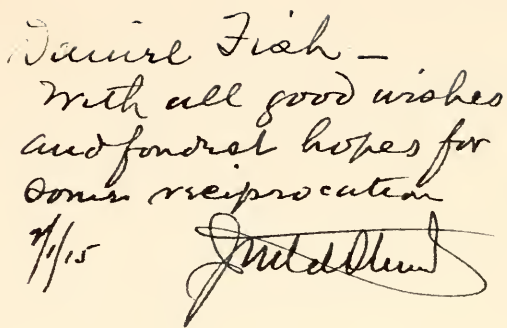 Fish —
With all good wishes
and fondest hopes for
some reciprocation
/1/15